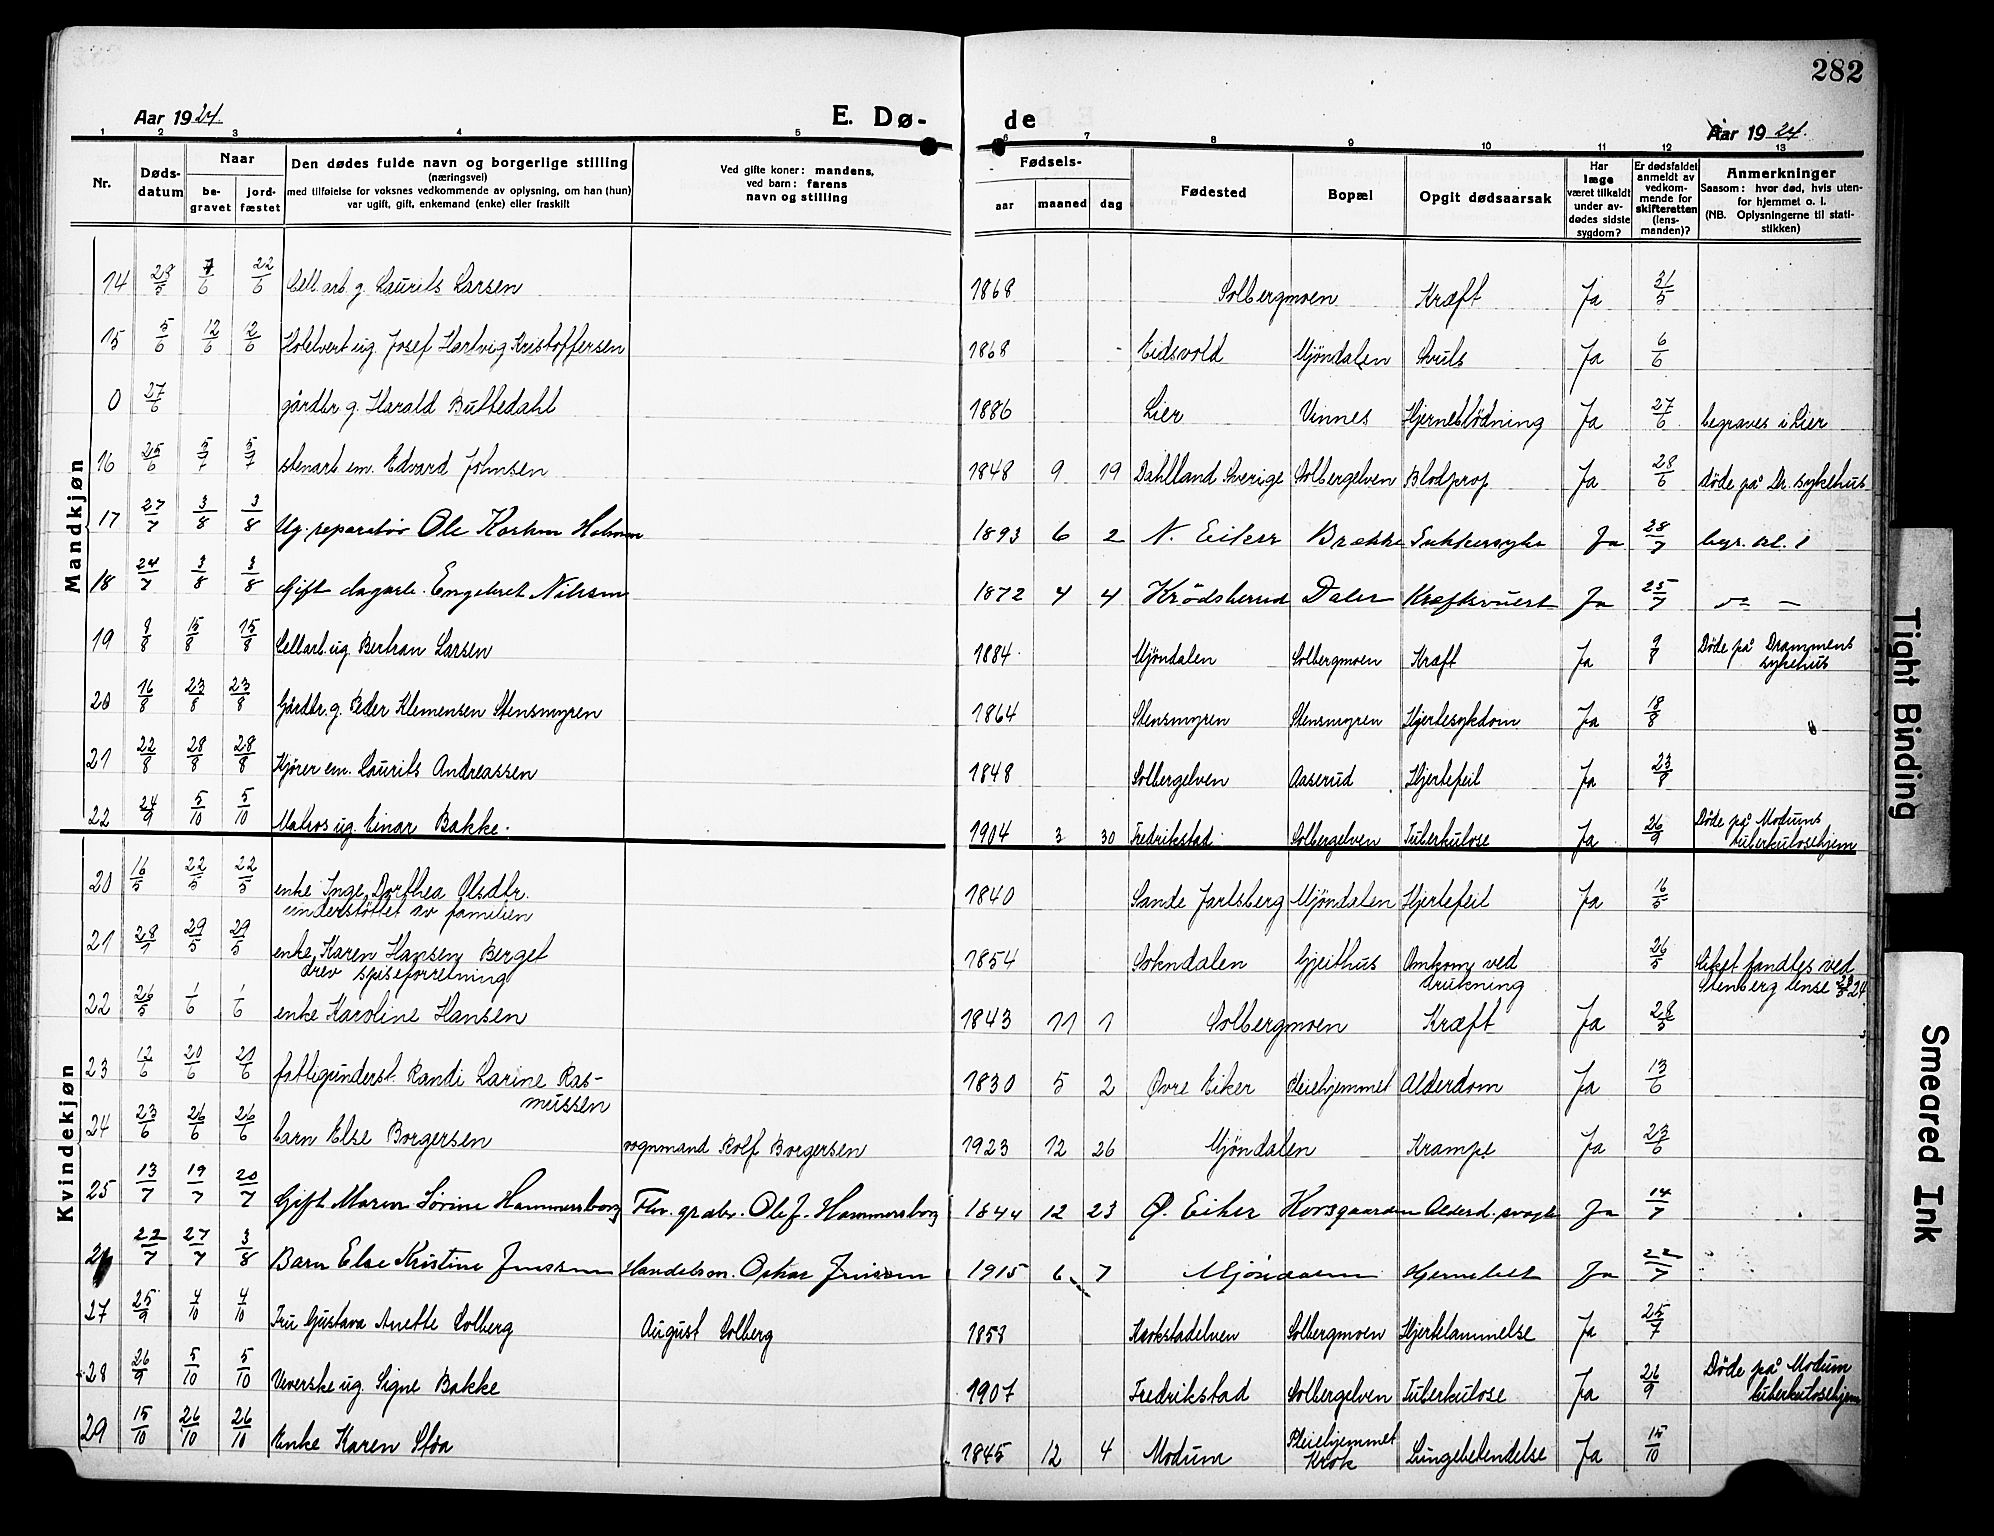 282
Aar 1924.
E. Dø-
de
Aar 1924.
1 2 3 4 5 6 7 8 9 10 11 12 13
Nr.
Døds-
datum
Naar
be-
gravet
jord-
fæstet
Den dødes fulde navn og borgerlige stilling
(næringsvei)
med tilføielse for voksnes vedkommende av oplysning, om han (hun)
var ugift, gift, enkemand (enke) eller fraskilt
Ved gifte koner: mandens,
ved barn: farens
navn og stilling
Fødsels-
aar maaned dag
Fødested
Bopæl
Opgit dødsaarsak
Har
læge
været tilkaldt
under av-
dødes sidste
sygdom?
Er dødsfaldet
anmeldt av
vedkom-
mende for
skifteretten
(lens-
manden)?
Anmerkninger
Saasom: hvor død, hvis uten-
for hjemmet o. l.
(NB. Oplysningerne til stati-
stikken)
Mandkjøn
14 28/5 7/6 22/6 Cell.arb. g. Laurits Larsen 1868 Solbergmoen Kræft Ja 31/5
15 5/6 12/6 12/6 ug. Josef Hartvig Kristoffersen 1868 Eidsvold Mjøndalen Ja 6/6
0 27/6 gårdbr g. Harald Buttedahl 1886 Lier Vinnes Hjerneblödning Ja 27/6 begraves i Lier
16 25/6 5/7 5/7 stenarb em. Edvard Johnsen 1848 9 19 Dahlland Sverige Solbergelven Blodprop Ja 28/6 Døde på Dr. sykehus
17 27/7 3/8 3/8 Ug. reparatør Ole 1893 6 2 N. Eiker Brække Sukkersyke Ja 28/7 begr. kl. 1
18 24/7 3/8 3/8 Gift dagarb. Engebret Nilssen 1872 4 4 Krødsherred Daler Kræftsvulst Ja 25/7 do —
19 8/8 15/8 15/8 Cellarb. ug. Bertran Larsen 1884 Mjöndalen Solbergmoen Kræft Ja 9/8 Döde på Drammens
sykehus
20 16/8 23/8 23/8 Gårdbr. g. Peder Klemensen Stensmyren 1864 Stensmyren Stensmyren Hjertesykdom Ja 18/8
21 22/8 28/8 28/8 Kjører em. Laurits Andreassen 1848 Solbergelven Aaserud Hjertefeil Ja 23/8
22 24/9 5/10 5/10 Matros ug. Einar Bakke. 1904 3 30 Fredrikstad. Solbergelven Tuberkulose Ja 26/9 Döde på Modums
tuberkulosehjem
Kvindekjøn
20 16/5 22/5 22/5 enke Inge Dorthea Olsdtr.
understöttet av familien 1840 Sande Jarlsberg Mjöndalen Hjertefeil Ja 16/5
21 28/1 29/5 29/5 enke, Karen Hansen, Berget
drev spiseforretning 1854 Sokndalen Gjeithus Omkom ved
drukning 26/5 Liket fandtes ved
Stenberg lense 24
22 26/5 1/6 1/6 enke Karoline Hansen 1843 11 1 Solbergmoen Kræft Ja 28/5
23 12/6 20/6 21/6 fattigunderst. Randi Larine Ras-
mussen 1830 5 2 Øvre Eiker Pleiehjemmet Alderdom Ja 13/6
24 23/6 26/6 26/6 barn Else Borgersen vognmand Rolf Borgersen 1923 12 26 Mjöndalen Krampe Ja 23/6
25 13/7 19/7 20/7 Gift Maren Sørine Hammersborg Fhv. Ole J. Hammersborg 1844 12 23 Ø. Eiker Korsgaarden Alderd. Ja 14/7
26 22/7 27/7 3/8 Barn Else Kristine Jenssen Handelsm. Oskar Jenssen 1915 6 7 Mjöndalen Ja 22/7
27 25/9 4/10 4/10 Fru Gustava Anette Solberg August Solberg 1858 Solbergmoen Hjertelammelse Ja 25/7
28 26/9 5/10 5/10 Veverske ug. Signe Bakke 1907 Fredrikstad Solbergelven Tuberkulose Ja 26/9 Döde på Modum
tuberkulosehjem
29 15/10 26/10 26/10 Enke Karen Sloa 1845 12 4 Modum Pleiehjemmet
Krok Lungebetendelse Ja 15/10
Tight Binding
Smeared Ink